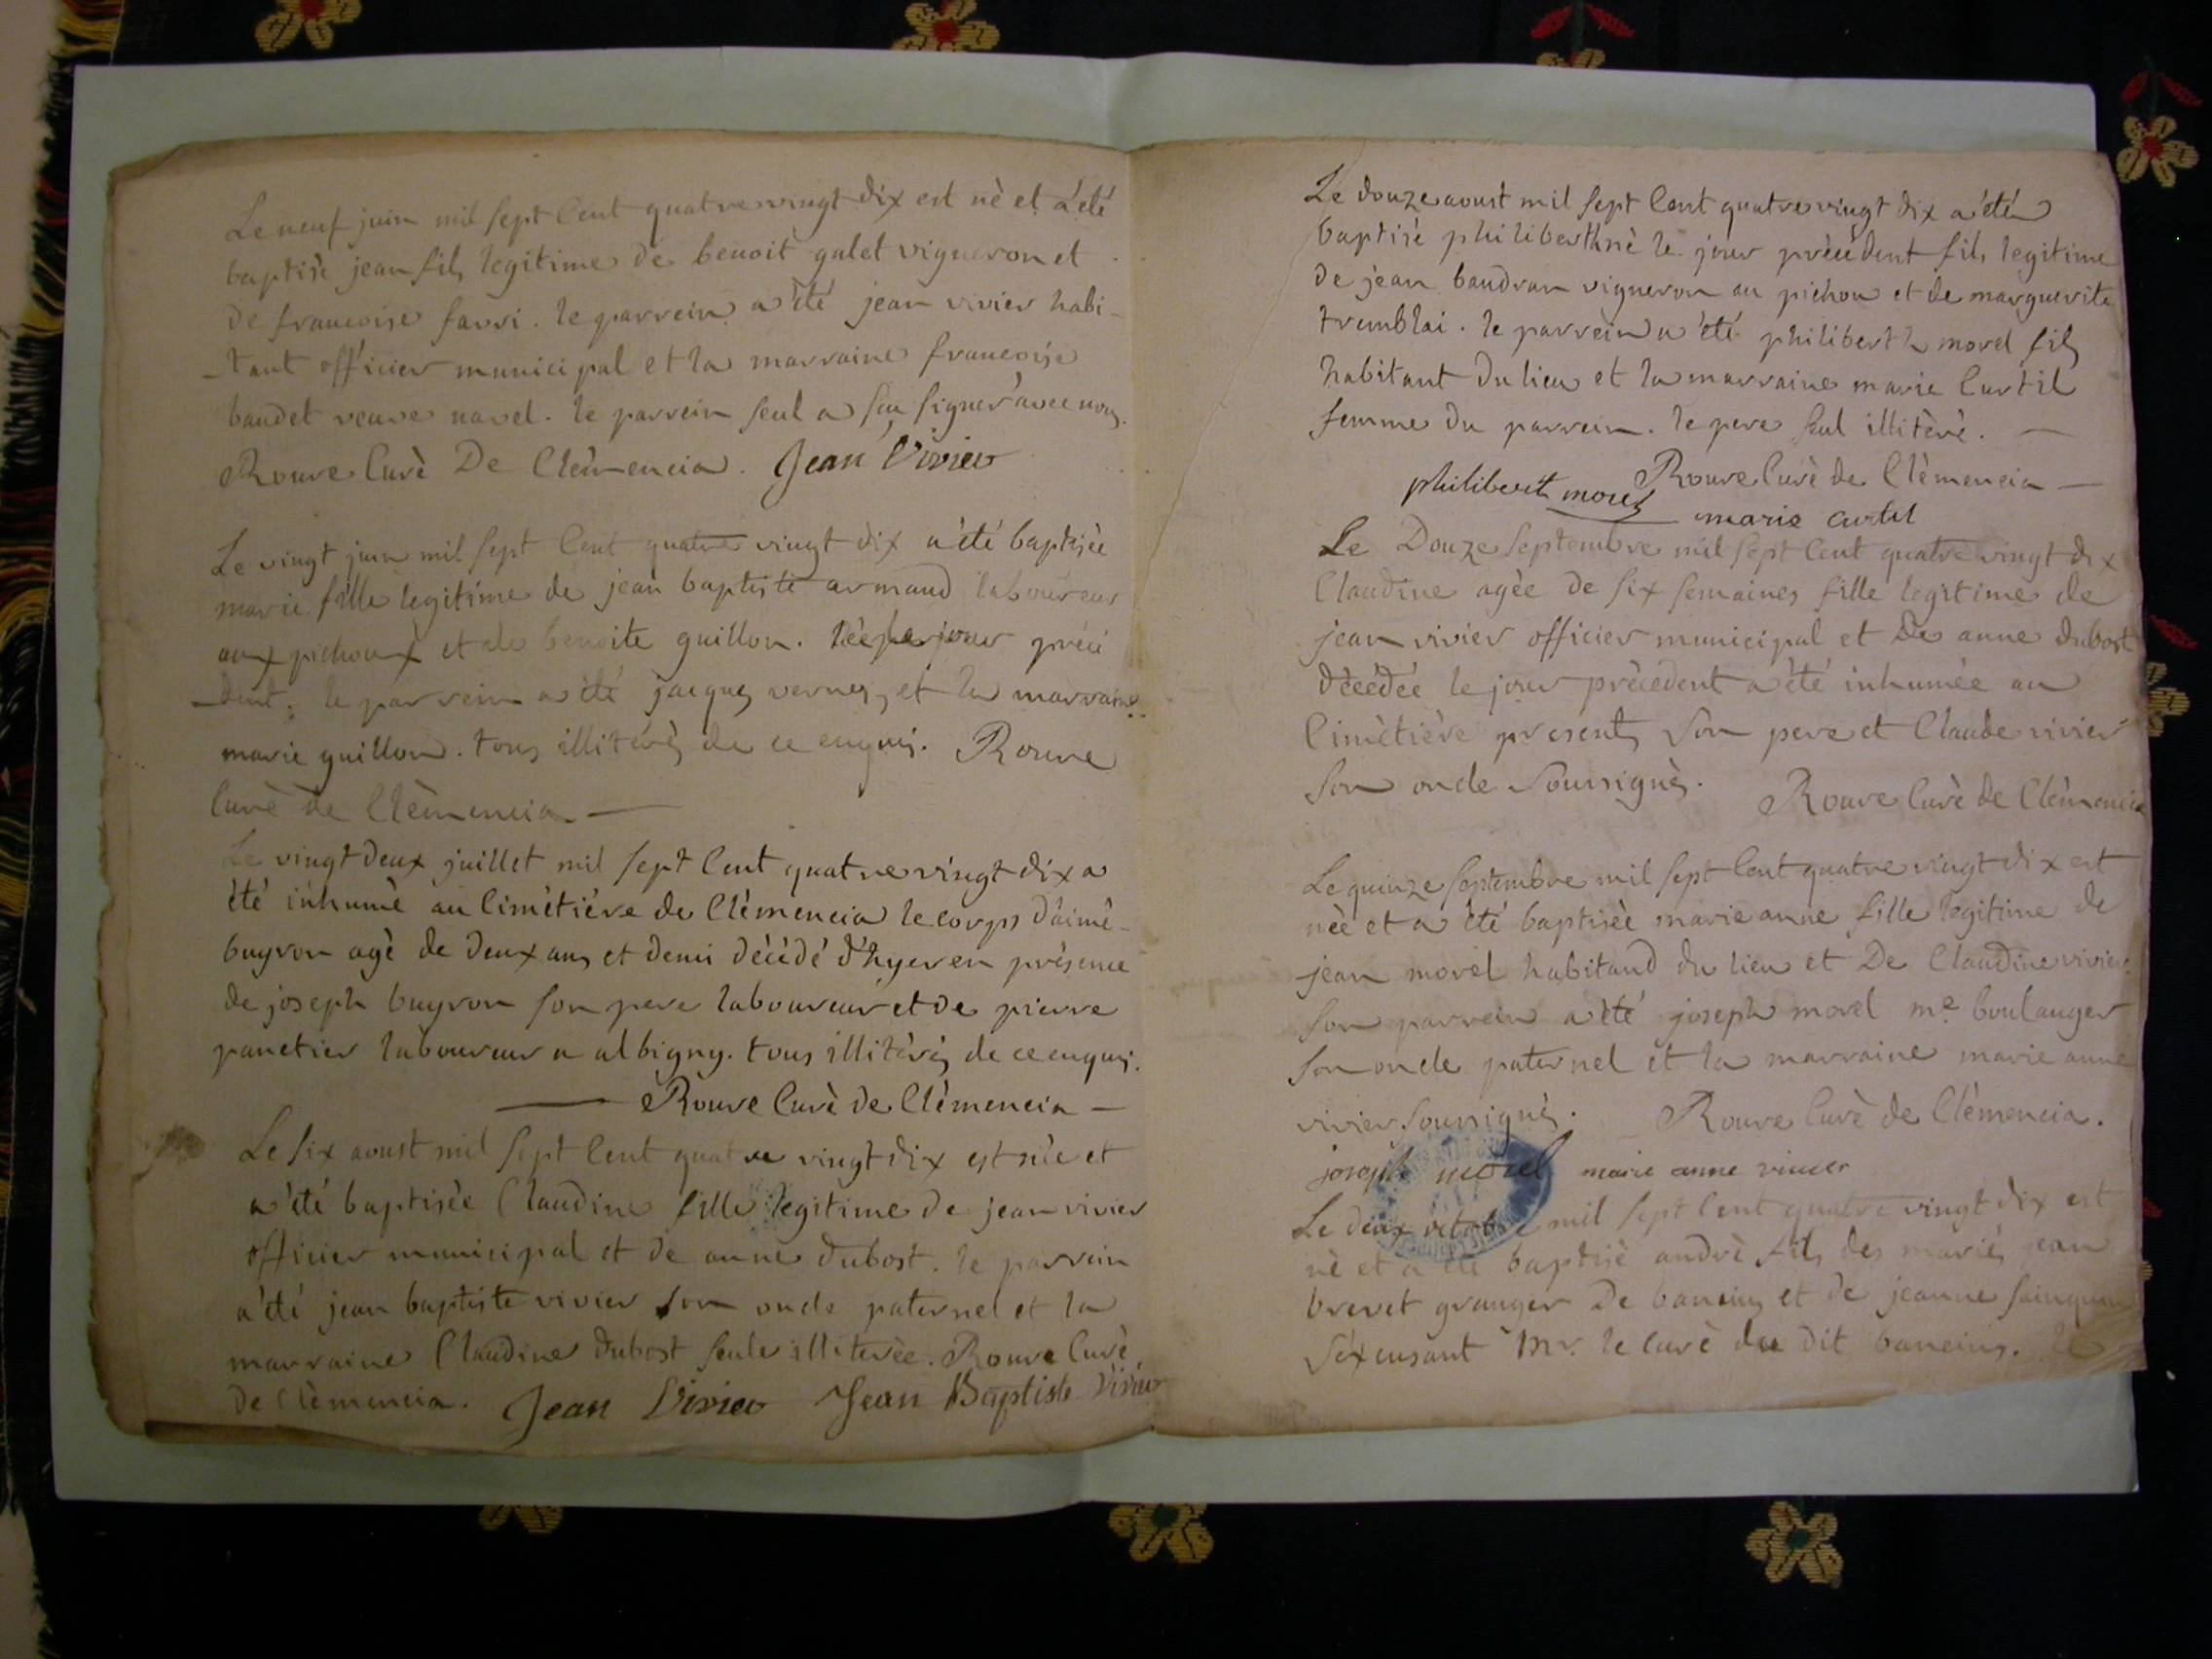 Le neuf juin mil sept Cent quatre vingt dix est nè et a été
baptisè jean fils legitime de benoit galet vigneron et
de francoise farri. le parrein a été jean vivier habi-
-tant officier municipal et la marraine francoise
baudet veuve navel. le parrein seul a sçu signer avec nous.
Rouve Curè De Clèmencia. Jean Vivier
Le vingt juin mil sept Cent quatre vingt dix a été baptisèe
marie fille legitime de jean baptiste armand laboureur
aux pichoux et de benoite guillon. née le jour précé
-dent. le parrein a été jacques vernes, et la marraine
marie guillon. tous illitérés de ce enquis. Rouve
Curè de Clèmencia —
Le vingt deux juillet mil sept Cent quatre vingt dix a
été inhumè au Cimétiére de Clèmencia le corps d'aimé
buyron agè de deux ans et demi décédé d'hyer en présence
de joseph buyron son pere laboureur et de pierre
panetier laboureur a albigny. tous illitérés de ce enquis.
— Rouve Curè de Clèmencia —
Le six aoust mil sept Cent quatre vingt dix est née et
a été baptisèe Claudine fille legitime de jean vivier
officier municipal et de anne dubost. le parrein
a été jean baptiste vivier son oncle paternel et la
marraine Claudine dubost seule illiterée. Rouve Curè
de Clèmencia. Jean Vivier Jean Baptiste Vivier
Le douze aoust mil sept Cent quatre vingt dix a été
baptisè philibert nè le jour prècedent fils legitime
de jean baudran vigneron au pichon et de marguerite
tremblai. le parrein a été philibert morel fils
habitant du lieu et la marraine marie Curtil
femme du parrein. le pere seul illitèré. —
Rouve Curè de Clèmencia —
philibert morel marie curtil
Le Douze septembre mil sept Cent quatre vingt dix
Claudine agèe de six semaines fille legitime de
jean vivier officier municipal et De anne dubost
dècédée le jour prècedent a été inhumée au
Cimètière présents son pere et Claude vivier
son oncle soussignès. Rouve Curè de Clèmencia
Le quinze septembre mil sept Cent quatre vingt dix est
nèe et a été baptisèe marie anne fille legitime de
jean morel habitand du lieu et De Claudine vivier.
son parrein a été joseph morel me boulanger
son oncle paternel et la marraine marie anne
vivier soussignès. Rouve Curè de Clèmencia.
joseph morel marie anne vivier
Le deux octobre mil sept Cent quatre vingt dix est
nè et a été baptisè andrè fils des mariés jean
brevet granger De baneins et de jeanne
s'éxcusant Mr. le Curè du dit baneins. le